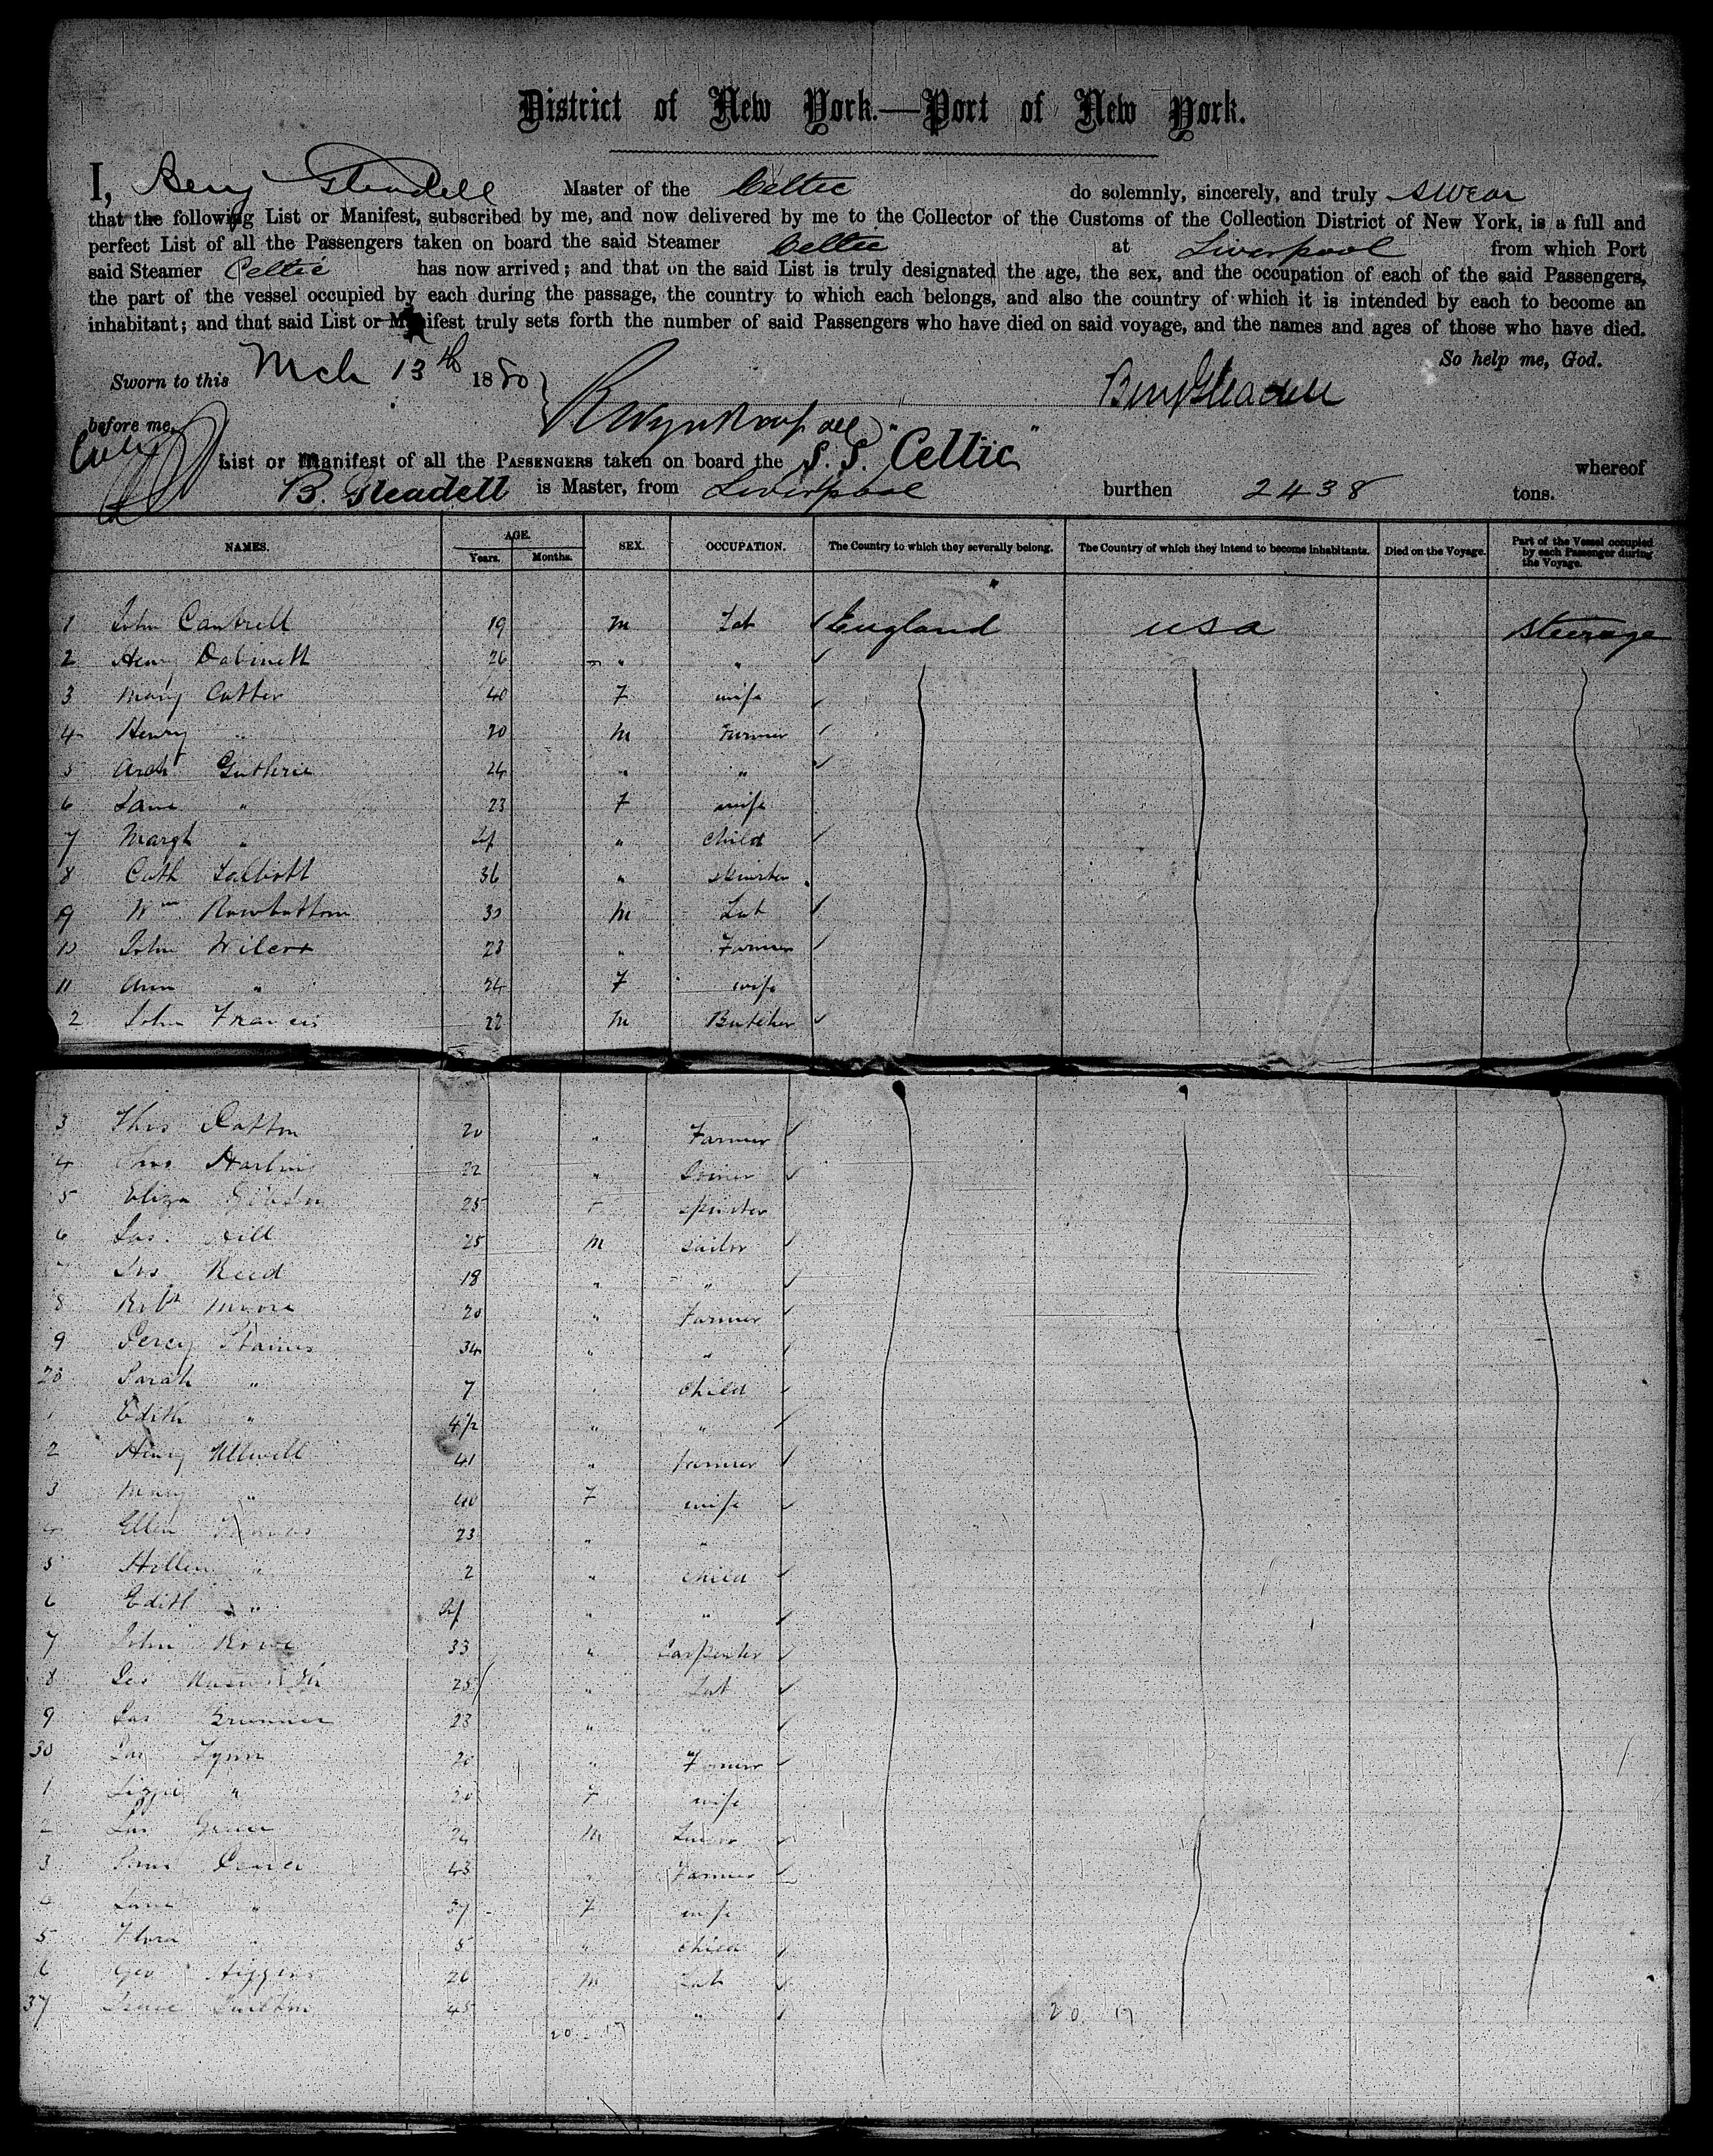 District of New York.—Port of New York.
I, Benj Gleadell Master of the Celtic do solemnly, sincerely, and truly swear
that the following List or Manifest, subscribed by me, and now delivered by me to the Collector of the Customs of the Collection District of New York, is a full and
perfect List of all the Passengers taken on board the said Steamer Celtic at Liverpool from which Port
said Steamer Celtic has now arrived; and that on the said List is truly designated the age, the sex, and the occupation of each of the said Passengers,
the part of the vessel occupied by each during the passage, the country to which each belongs, and also the country of which it is intended by each to become an
inhabitant; and that said List or Manifest truly sets forth the number of said Passengers who have died on said voyage, and the names and ages of those who have died.
So help me, God.
Sworn to this Mch 13th 1880
Benj Gleadell
before me,
List or Manifest of all the PASSENGERS taken on board the S. S. Celtic whereof
B. Gleadell is Master, from Liverpool burthen 2438 tons.
NAMES. AGE. Years. Months. SEX. OCCUPATION. The Country to which they severally belong. The Country of which they intend to become inhabitants. Died on the Voyage. Part of the Vessel occupied by each Passenger during the Voyage.
1 John Cantrell 19 M Lab England USA Steerage
2 Henry Dabinett 26 " "
3 Mary Cutter 40 F wife
4 Henry " 20 M Farmer
5 Arch Guthrie 24 " "
6 Jane " 23 F wife
7 Margt " Inf " child
8 Cath 36 " spinster
9 Wm Rowbottom 30 M Lab
10 John Wilcox 23 " Farmer
11 Ann " 24 F wife
2 John Francis 22 M Butcher
3 Thos 20 " Farmer
4 22 " Joiner
5 Eliza 25 F spinster
6 Jas Hill 25 M sailor
7 Jos Reed 18 " "
8 Robt Moore 20 " Farmer
9 Percy Staines 34 " "
20 Sarah " 7 child
1 Edith " 4½ " "
2 Henry 41 " Farmer
3 Mary " 40 F wife
4 Ellen 23 " "
5 " 2 " child
6 Edith " Inf " "
7 John Rowe 33 " Carpenter
8 25 " Lab
9 Jas 23 " "
30 Jas Lynn 20 " Farmer
1 Lizzie " 20 F wife
2 Jas 24 M
3 43 " Farmer
4 Jane " 37 F wife
5 Flora " 5 " child
6 Geo Higgins 26 M Lab
37 45 "
20 17 20 17